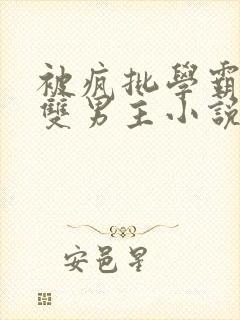 被疯批學霸
雙男主小説
安邑星